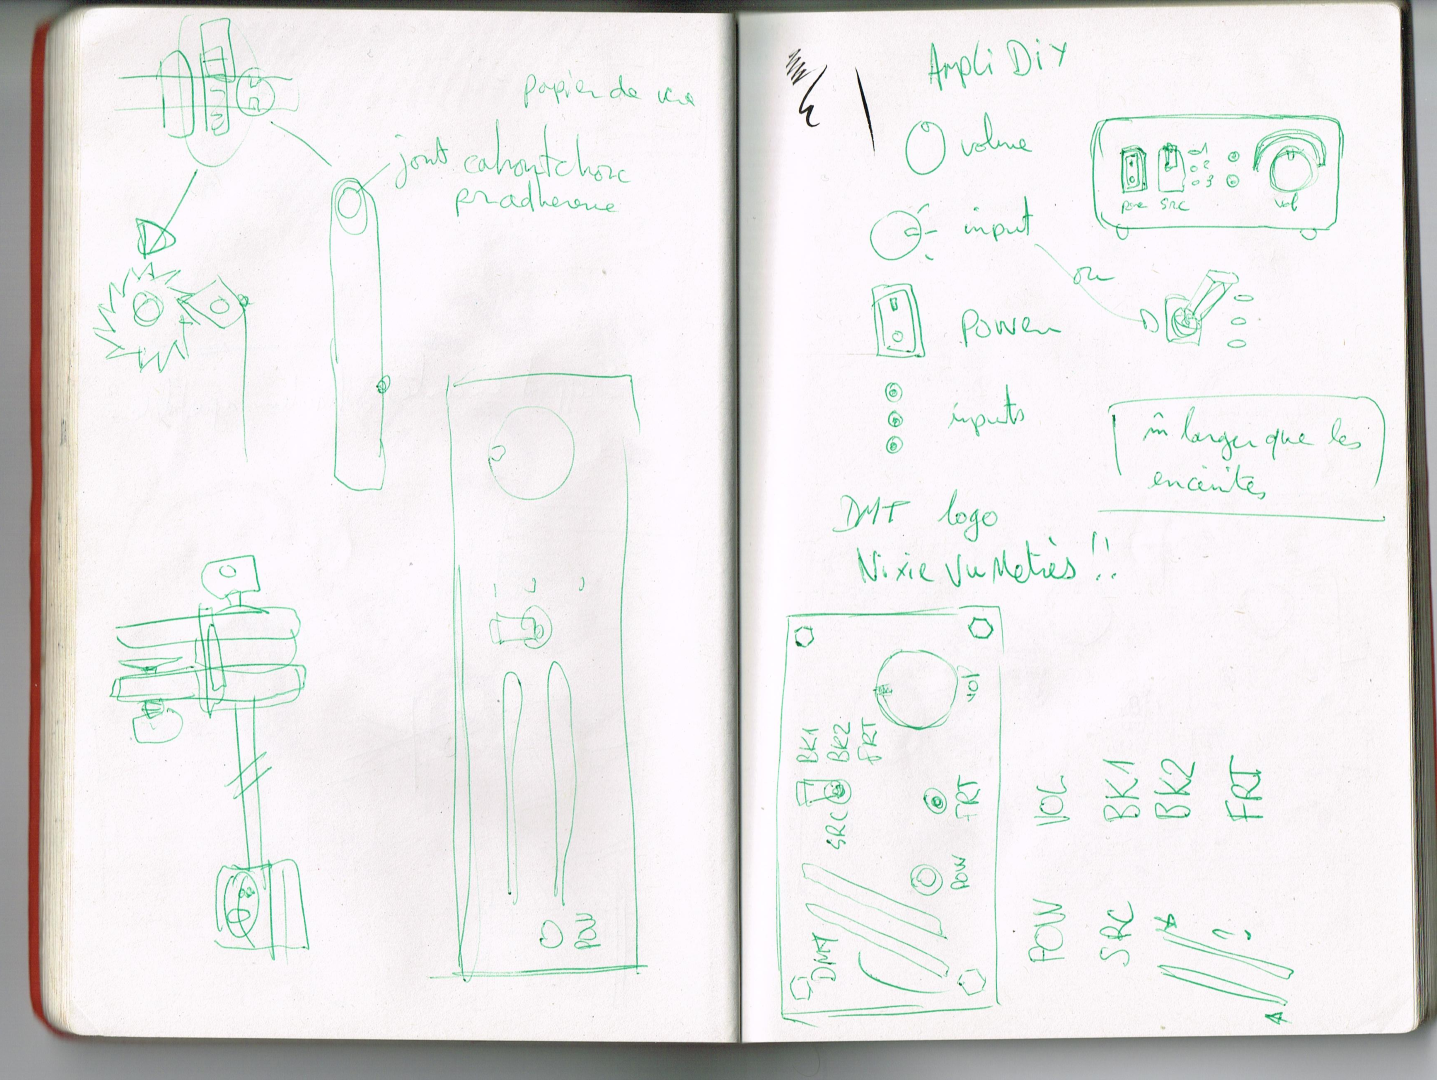 papier de
joint cahoutchouc
pr adherence
POW
Ampli DiY
volume
input
ou
Power
inputs
pow SRC vol
1
2
3
m larger que les
enceintes
DMT logo
Nixie Vu Metres !!
vol
BK1
BK2
FRT
SRC
FRT
POW
DMT
VOL
BK1
BK2
FRT
POW
SRC
?